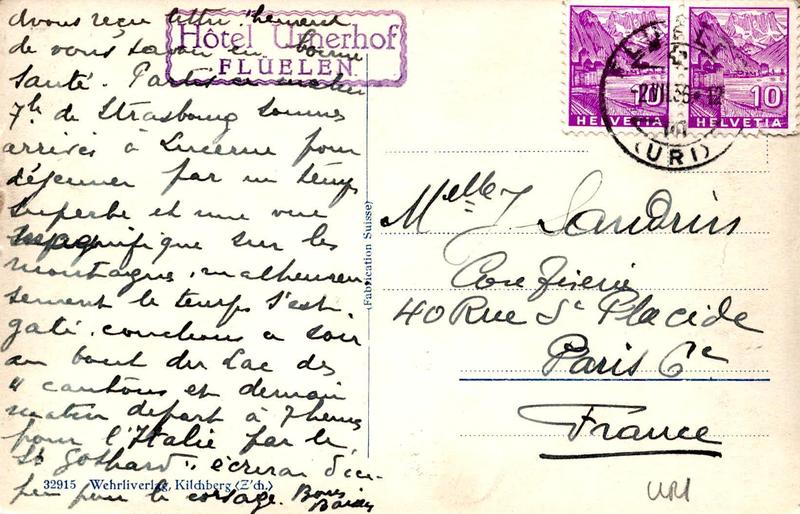 avons reçu lettre heureusement
de vous savoir en bonne
santé. Partis ce matin
7h de Strasbourg sommes
arrivés à Lucerne pour
déjeuner par un temps
superbe et une vue
magnifique sur les
montagnes, malheureu
sement le temps s'est
gaté. couchons ce soir
au bout du Lac des
4 cantons et demain
matin départ à 7 heures
pour l'Italie par le
St Gothard
peu pour le corsage. Bons
Baisers
Hôtel Urnerhof
FLÜELEN
HELVETIA 10
HELVETIA 10
FLÜELEN
(URI)
(Fabrication Suisse)
Melle J. Sandrin
40 Rue St Placide
Paris 6e
France
URI
32915 Wehrliverlag, Kilchberg (Z'ch.)